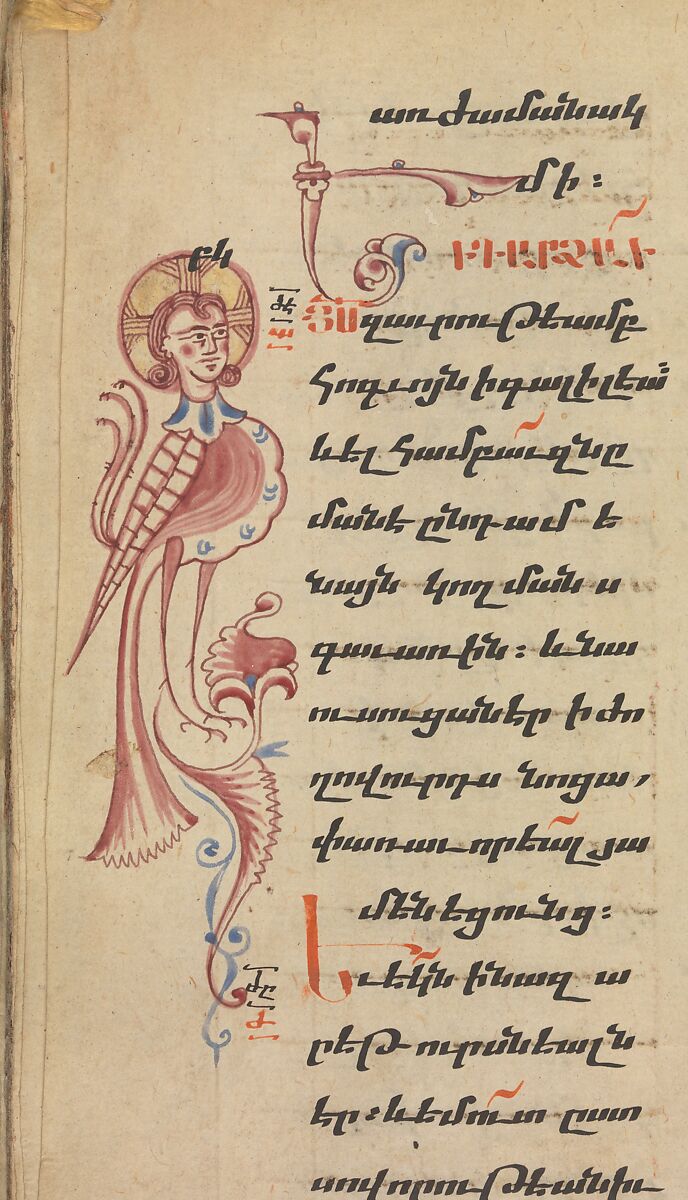 առ ժամանակ
մի։
ԵՒԴԱՐՁԱՒ
ՅՍ զաւրութեամբ
հոգւոյն ի գալիլեա՛
և ել համբաւ զնը
մանէ ընդ ամե
նայն կողմանս
գաւառին։ և նա
ուսուցանէր ի ժո
ղովուրդս նոցա,
փառաւորեալ յա
մենեցունց։
Եւ եկն ի նազա
րեթ ուր սնեալն
էր։ և եմուտ ըստ
սովորութեան իւ